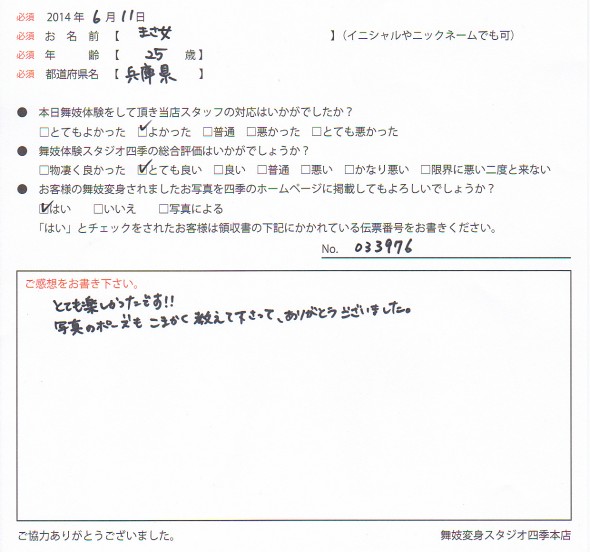 必須 2014 年 6 月 11日
必須 お 名 前 【 まさ女 】(イニシャルやニックネームでも可)
必須 年 齢 【 25 歳】
必須 都道府県名 【 兵庫県 】
● 本日舞妓体験をして頂き当店スタッフの対応はいかがでしたか?
□とてもよかった ☑よかった □普通 □悪かった □とても悪かった
● 舞妓体験スタジオ四季の総合評価はいかがでしょうか?
□物凄く良かった ☑とても良い □良い □普通 □悪い □かなり悪い □限界に悪い二度と来ない
● お客様の舞妓変身されましたお写真を四季のホームページに掲載してもよろしいでしょうか?
☑はい □いいえ □写真による
「はい」とチェックをされたお客様は領収書の下記にかかれている伝票番号をお書きください。
No. 033976
ご感想をお書き下さい。
とても楽しかったです!!
写真のポーズも こまかく教えて下さって、ありがとうございました。
ご協力ありがとうございました。
舞妓変身スタジオ四季本店